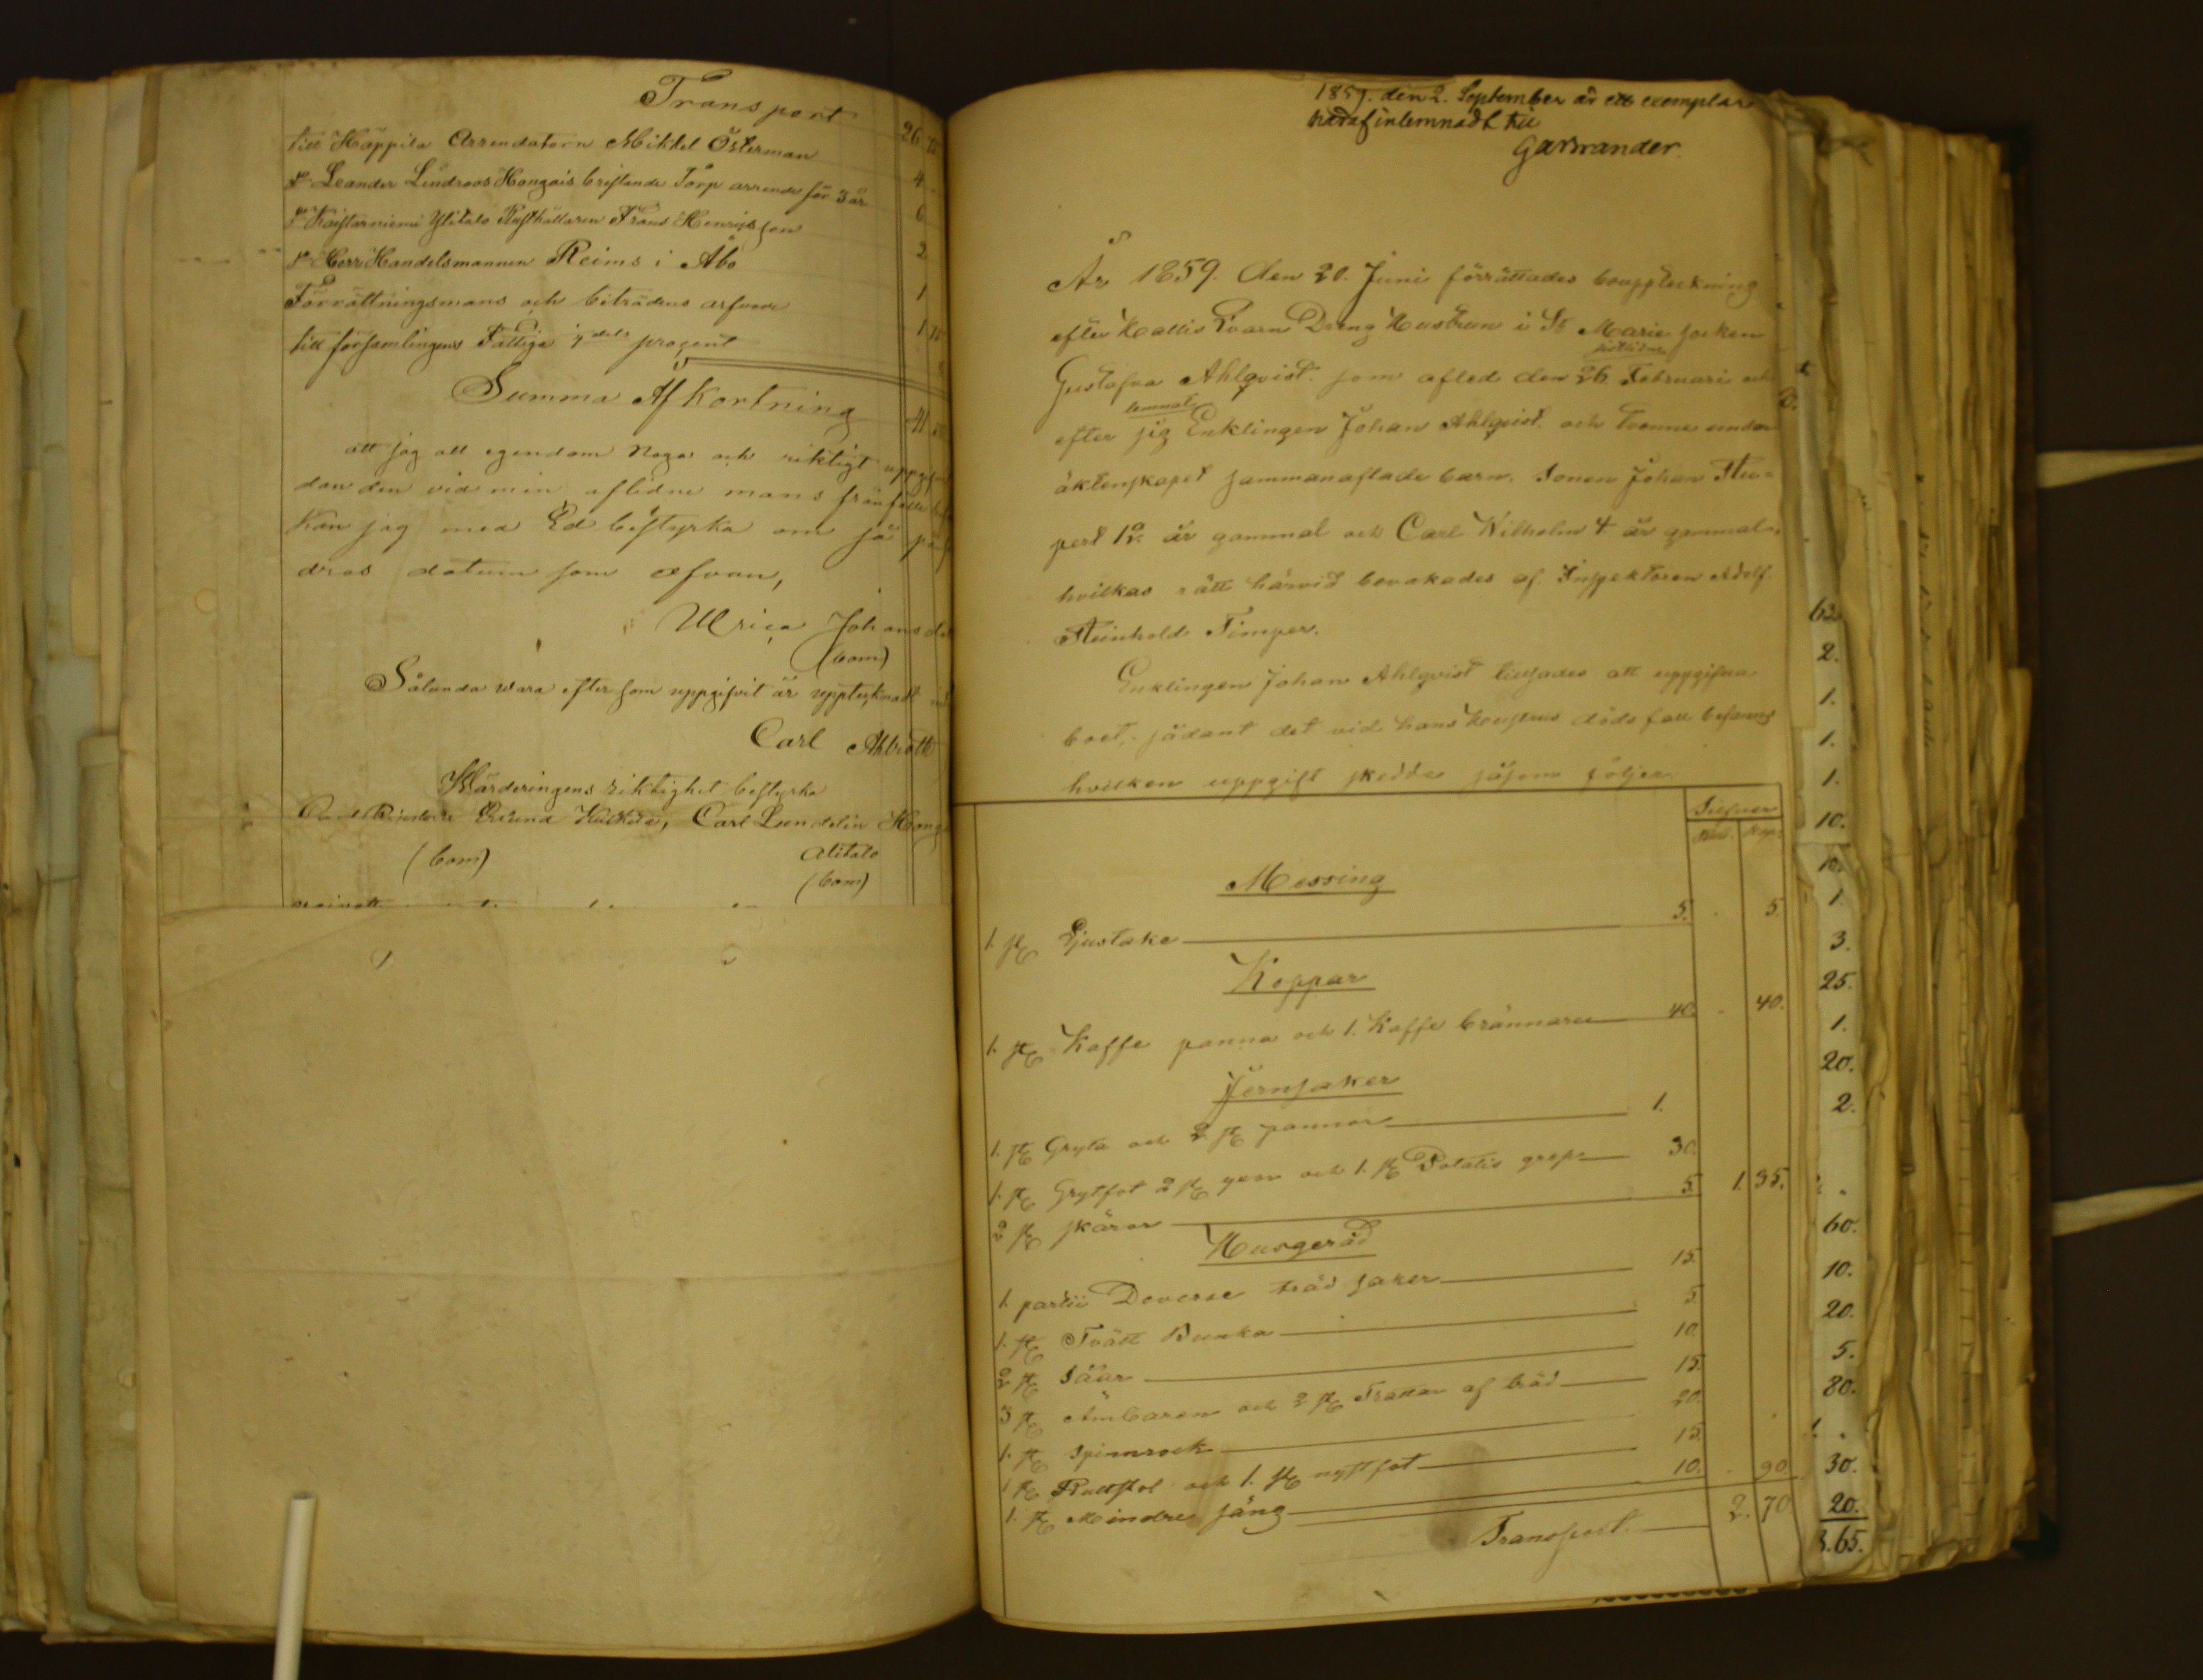 Transport
till Häppilä Arrendatorn Mikkel Österman 26 75
Dº Leander Lindroos Hongais bristande Torp arrende för 3 år 4
Dº Kaistarniemi Ylitalo Rusthållaren Frans Henriksson 6
Dº Herr Handelsmannen Reims i Åbo 2
Förrättningsmans och biträdens arfvode 1
till församlingens Fattiga dels procent 1 15
Summa Afkortning 41
att jag all egendom noga och riktigt
dan den vid min aflidne mans frånfälle
kan jag med Ed bestyrka om så
dras datum som ofvan,
Ulrica Johans
(bom)
Sålunda wara efter som uppgifvit är upptecknadt
Carl
Wärderingens riktighet bestyrka
Carl Lundelin
Alitalo
(bom) (bom)
1859. den 2. September är ett exemplar
häraf inlemnadt till
Garvander.
År 1859. den 20. Juni förrättades bouppteckning
efter Kallis Qvarn Dreng Hustrun i St Marie socken
sistlidne
Gustafva Ahlqvist. som afled den 26 Februari och
lemnat
efter sig Enklingen Johan Ahlqvist. och tvenne under
äktenskapet sammanaflade barn. Sonen Johan Ru=
pert 12. år gammal och Carl Wilhelm 4 år gammal.
hvilkas rätt härvid bevakades af Inspektoren Adolf
Reinhold Timper.
Enklingen Johan Ahlqvist tillsades att uppgifva
boet, sådant det vid hans hustrus dödsfall befanns
hvilken uppgift skedde såsom följer.
Silfver
Rub. Kop.
Messing
1. st Ljustake 5. 5.
Koppar
1. st Kaffe panna och 1. Kaffe brännare 40. 40.
Jernsaker
1. st Gryta och 2 st pannor 1.
1. st Grytfot 2 st yxor och 1. st Potatis grepe 30.
2 st skäror 5. 1. 35.
Husgeråd
1. parti Diverse träd saker 15.
1. st Tvätt Bunka 5.
2 st Såar 10.
3 st Ämbaren och 2 st Trattar af träd 15.
1. st Spinnrock 20.
1 st Rullstol och 1. st nystfot 15.
1. st Mindre säng 10. 90.
Transport. 2. 70.
2.
1.
1.
1.
10.
10.
1.
3.
25.
1.
20.
2.
60.
10.
20.
5.
80.
30.
20.
65.